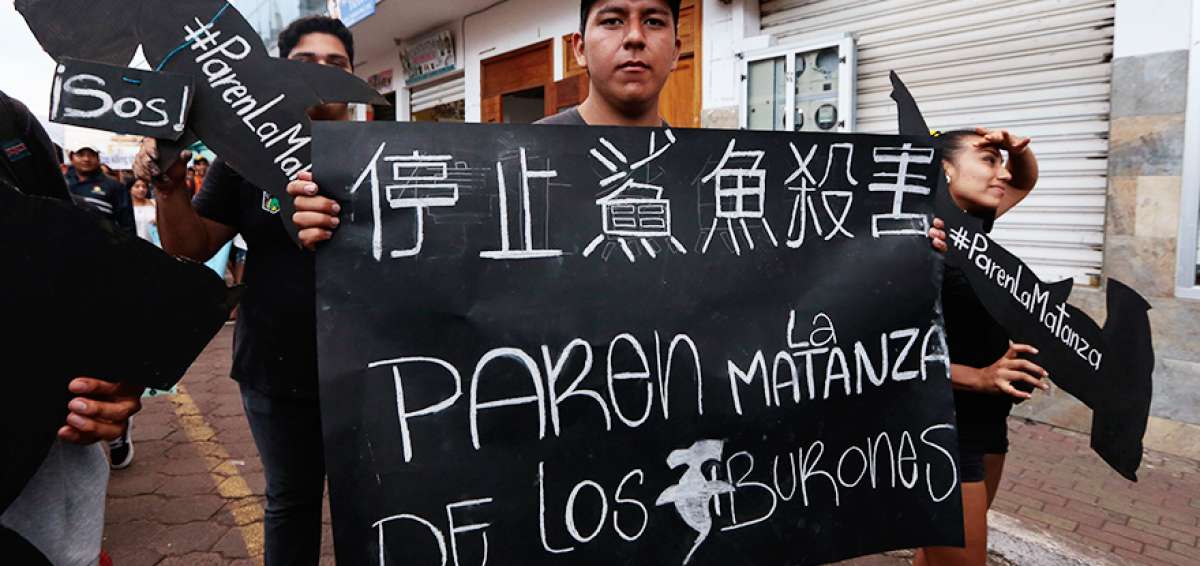 ¡Sos!
#ParenLaMa
停止鯊魚殺害
PAREN LA MATANZA
DE LOS TIBURONES
#ParenLaMatanza